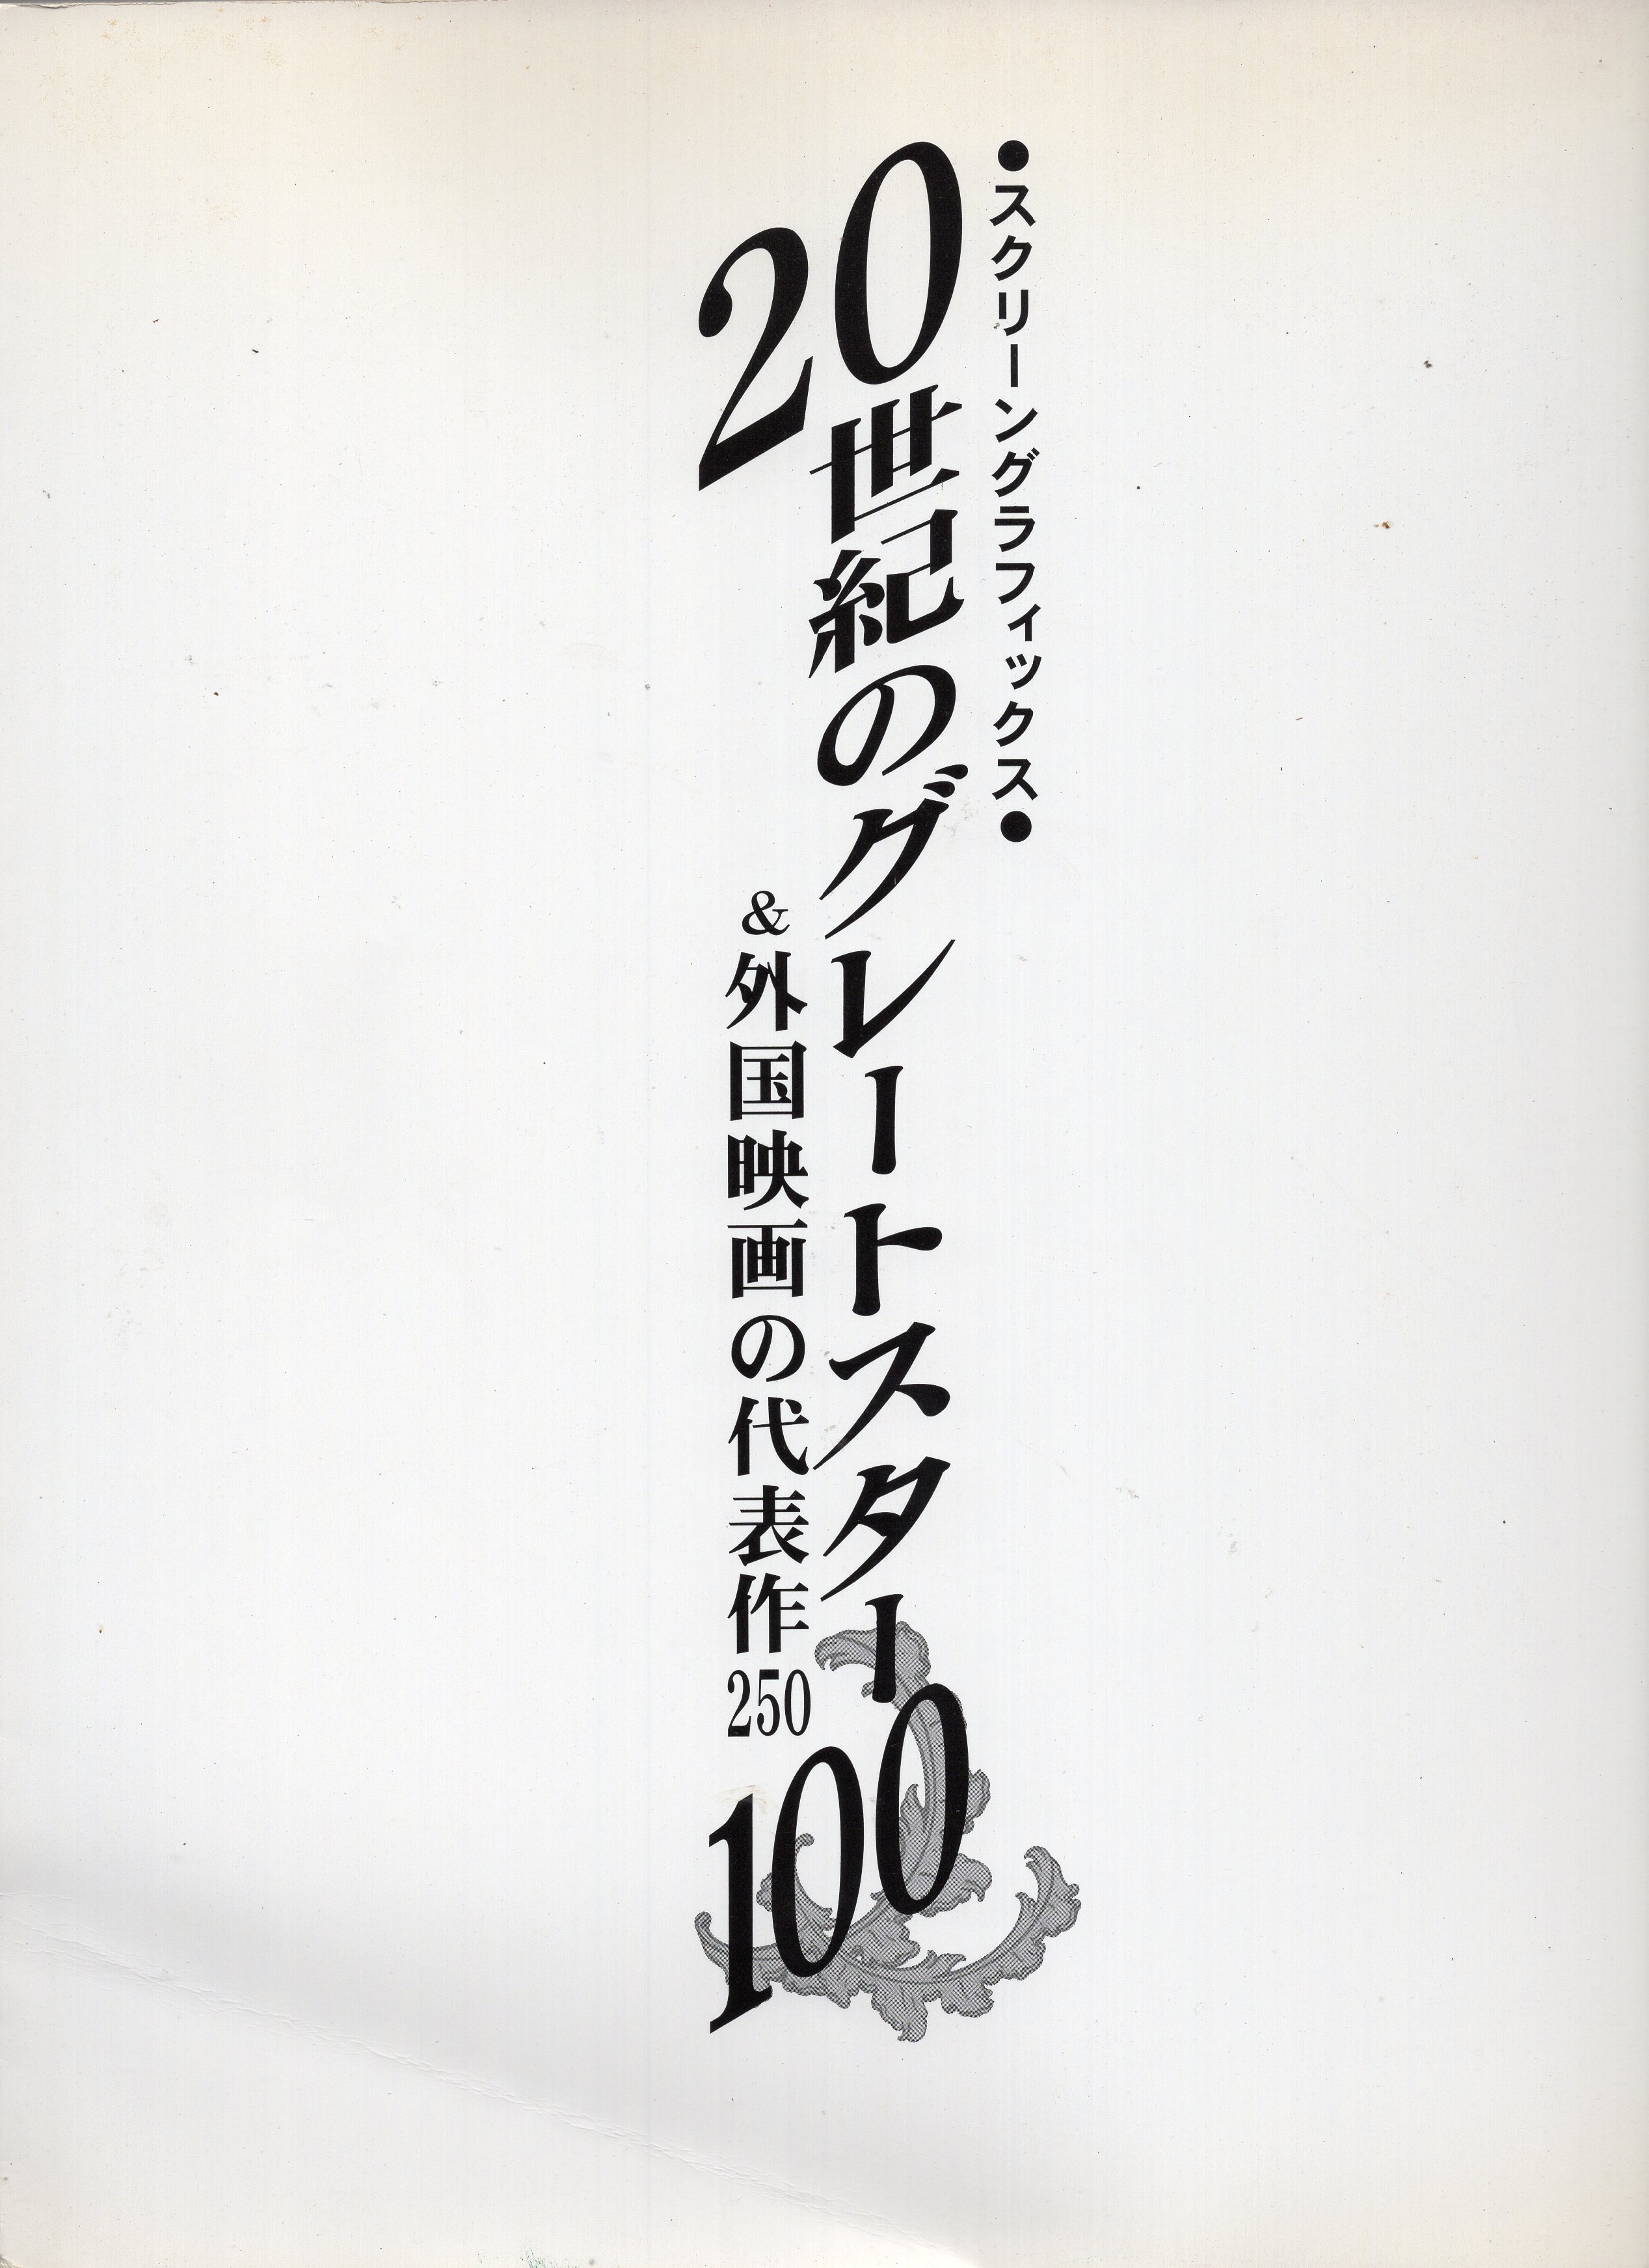 ●スクリーングラフィックス●
20世紀のグレートスター100
&外国映画の代表作250